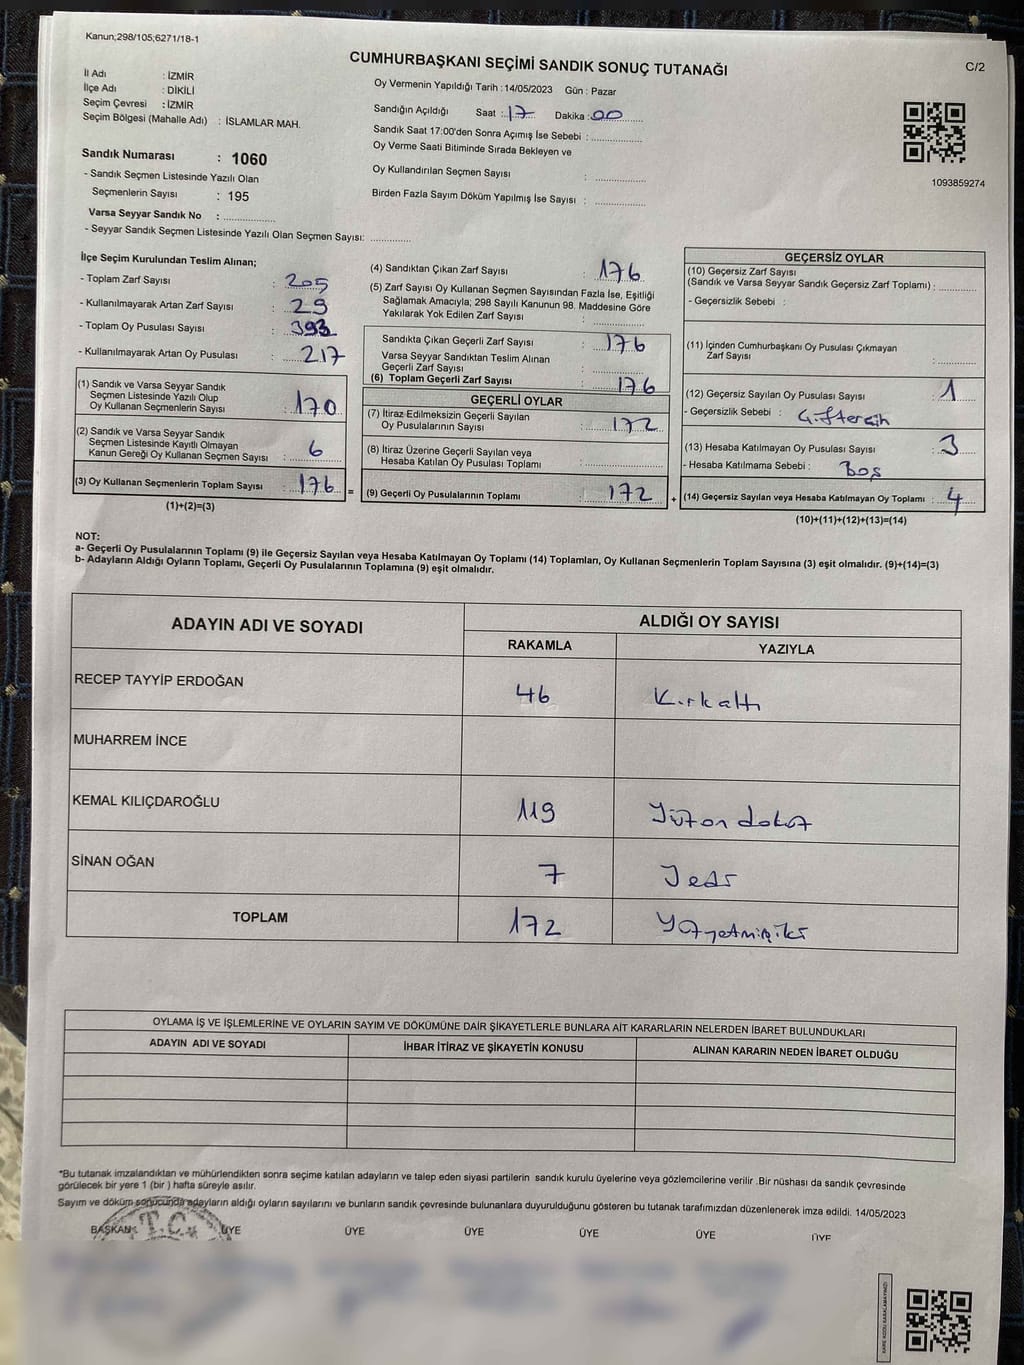 Kanun;298/105;6271/18-1
CUMHURBAŞKANI SEÇİMİ SANDIK SONUÇ TUTANAĞI
C/2
İl Adı : İZMİR
İlçe Adı : DİKİLİ
Seçim Çevresi : İZMİR
Seçim Bölgesi (Mahalle Adı) : İSLAMLAR MAH.
Sandık Numarası : 1060
- Sandık Seçmen Listesinde Yazılı Olan
Seçmenlerin Sayısı : 195
Varsa Seyyar Sandık No :
- Seyyar Sandık Seçmen Listesinde Yazılı Olan Seçmen Sayısı:
Oy Vermenin Yapıldığı Tarih : 14/05/2023 Gün : Pazar
Sandığın Açıldığı Saat : 17 Dakika : 00
Sandık Saat 17:00'den Sonra Açımış İse Sebebi :
Oy Verme Saati Bitiminde Sırada Bekleyen ve
Oy Kullandırılan Seçmen Sayısı :
Birden Fazla Sayım Döküm Yapılmış İse Sayısı :
1093859274
İlçe Seçim Kurulundan Teslim Alınan;
- Toplam Zarf Sayısı : 205
- Kullanılmayarak Artan Zarf Sayısı : 29
- Toplam Oy Pusulası Sayısı : 393
- Kullanılmayarak Artan Oy Pusulası : 217
(1) Sandık ve Varsa Seyyar Sandık
Seçmen Listesinde Yazılı Olup
Oy Kullanan Seçmenlerin Sayısı : 170
(2) Sandık ve Varsa Seyyar Sandık
Seçmen Listesinde Kayıtlı Olmayan
Kanun Gereği Oy Kullanan Seçmen Sayısı : 6
(3) Oy Kullanan Seçmenlerin Toplam Sayısı : 176
(1)+(2)=(3)
=
(4) Sandıktan Çıkan Zarf Sayısı : 176
(5) Zarf Sayısı Oy Kullanan Seçmen Sayısından Fazla İse, Eşitliği
Sağlamak Amacıyla; 298 Sayılı Kanunun 98. Maddesine Göre
Yakılarak Yok Edilen Zarf Sayısı :
Sandıkta Çıkan Geçerli Zarf Sayısı : 176
Varsa Seyyar Sandıktan Teslim Alınan
Geçerli Zarf Sayısı :
(6) Toplam Geçerli Zarf Sayısı : 176
GEÇERLİ OYLAR
(7) İtiraz Edilmeksizin Geçerli Sayılan
Oy Pusulalarının Sayısı : 172
(8) İtiraz Üzerine Geçerli Sayılan veya
Hesaba Katılan Oy Pusulası Toplamı :
(9) Geçerli Oy Pusulalarının Toplamı : 172
+
GEÇERSİZ OYLAR
(10) Geçersiz Zarf Sayısı
(Sandık ve Varsa Seyyar Sandık Geçersiz Zarf Toplamı) :
- Geçersizlik Sebebi :
(11) İçinden Cumhurbaşkanı Oy Pusulası Çıkmayan
Zarf Sayısı :
(12) Geçersiz Sayılan Oy Pusulası Sayısı : 1
- Geçersizlik Sebebi :
(13) Hesaba Katılmayan Oy Pusulası Sayısı : 3
- Hesaba Katılmama Sebebi : Boş
(14) Geçersiz Sayılan veya Hesaba Katılmayan Oy Toplamı : 4
(10)+(11)+(12)+(13)=(14)
NOT:
a- Geçerli Oy Pusulalarının Toplamı (9) ile Geçersiz Sayılan veya Hesaba Katılmayan Oy Toplamı (14) Toplamları, Oy Kullanan Seçmenlerin Toplam Sayısına (3) eşit olmalıdır. (9)+(14)=(3)
b- Adayların Aldığı Oyların Toplamı, Geçerli Oy Pusulalarının Toplamına (9) eşit olmalıdır.
ADAYIN ADI VE SOYADI ALDIĞI OY SAYISI
RAKAMLA YAZIYLA
RECEP TAYYİP ERDOĞAN 46 Kırkaltı
MUHARREM İNCE
KEMAL KILIÇDAROĞLU 119 Yüzon dokuz
SİNAN OĞAN 7 Yedi
TOPLAM 172 Yüzyetmişiki
OYLAMA İŞ VE İŞLEMLERİNE VE OYLARIN SAYIM VE DÖKÜMÜNE DAİR ŞİKAYETLERLE BUNLARA AİT KARARLARIN NELERDEN İBARET BULUNDUKLARI
ADAYIN ADI VE SOYADI İHBAR İTİRAZ VE ŞİKAYETİN KONUSU ALINAN KARARIN NEDEN İBARET OLDUĞU
*Bu tutanak imzalandıktan ve mühürlendikten sonra seçime katılan adayların ve talep eden siyasi partilerin sandık kurulu üyelerine veya gözlemcilerine verilir .Bir nüshası da sandık çevresinde
görülecek bir yere 1 (bir ) hafta süreyle asılır.
Sayım ve döküm sonucunda adayların aldığı oyların sayılarını ve bunların sandık çevresinde bulunanlara duyurulduğunu gösteren bu tutanak tarafımızdan düzenlenerek imza edildi. 14/05/2023
BAŞKAN ÜYE ÜYE ÜYE ÜYE ÜYE ÜYE
T.C.